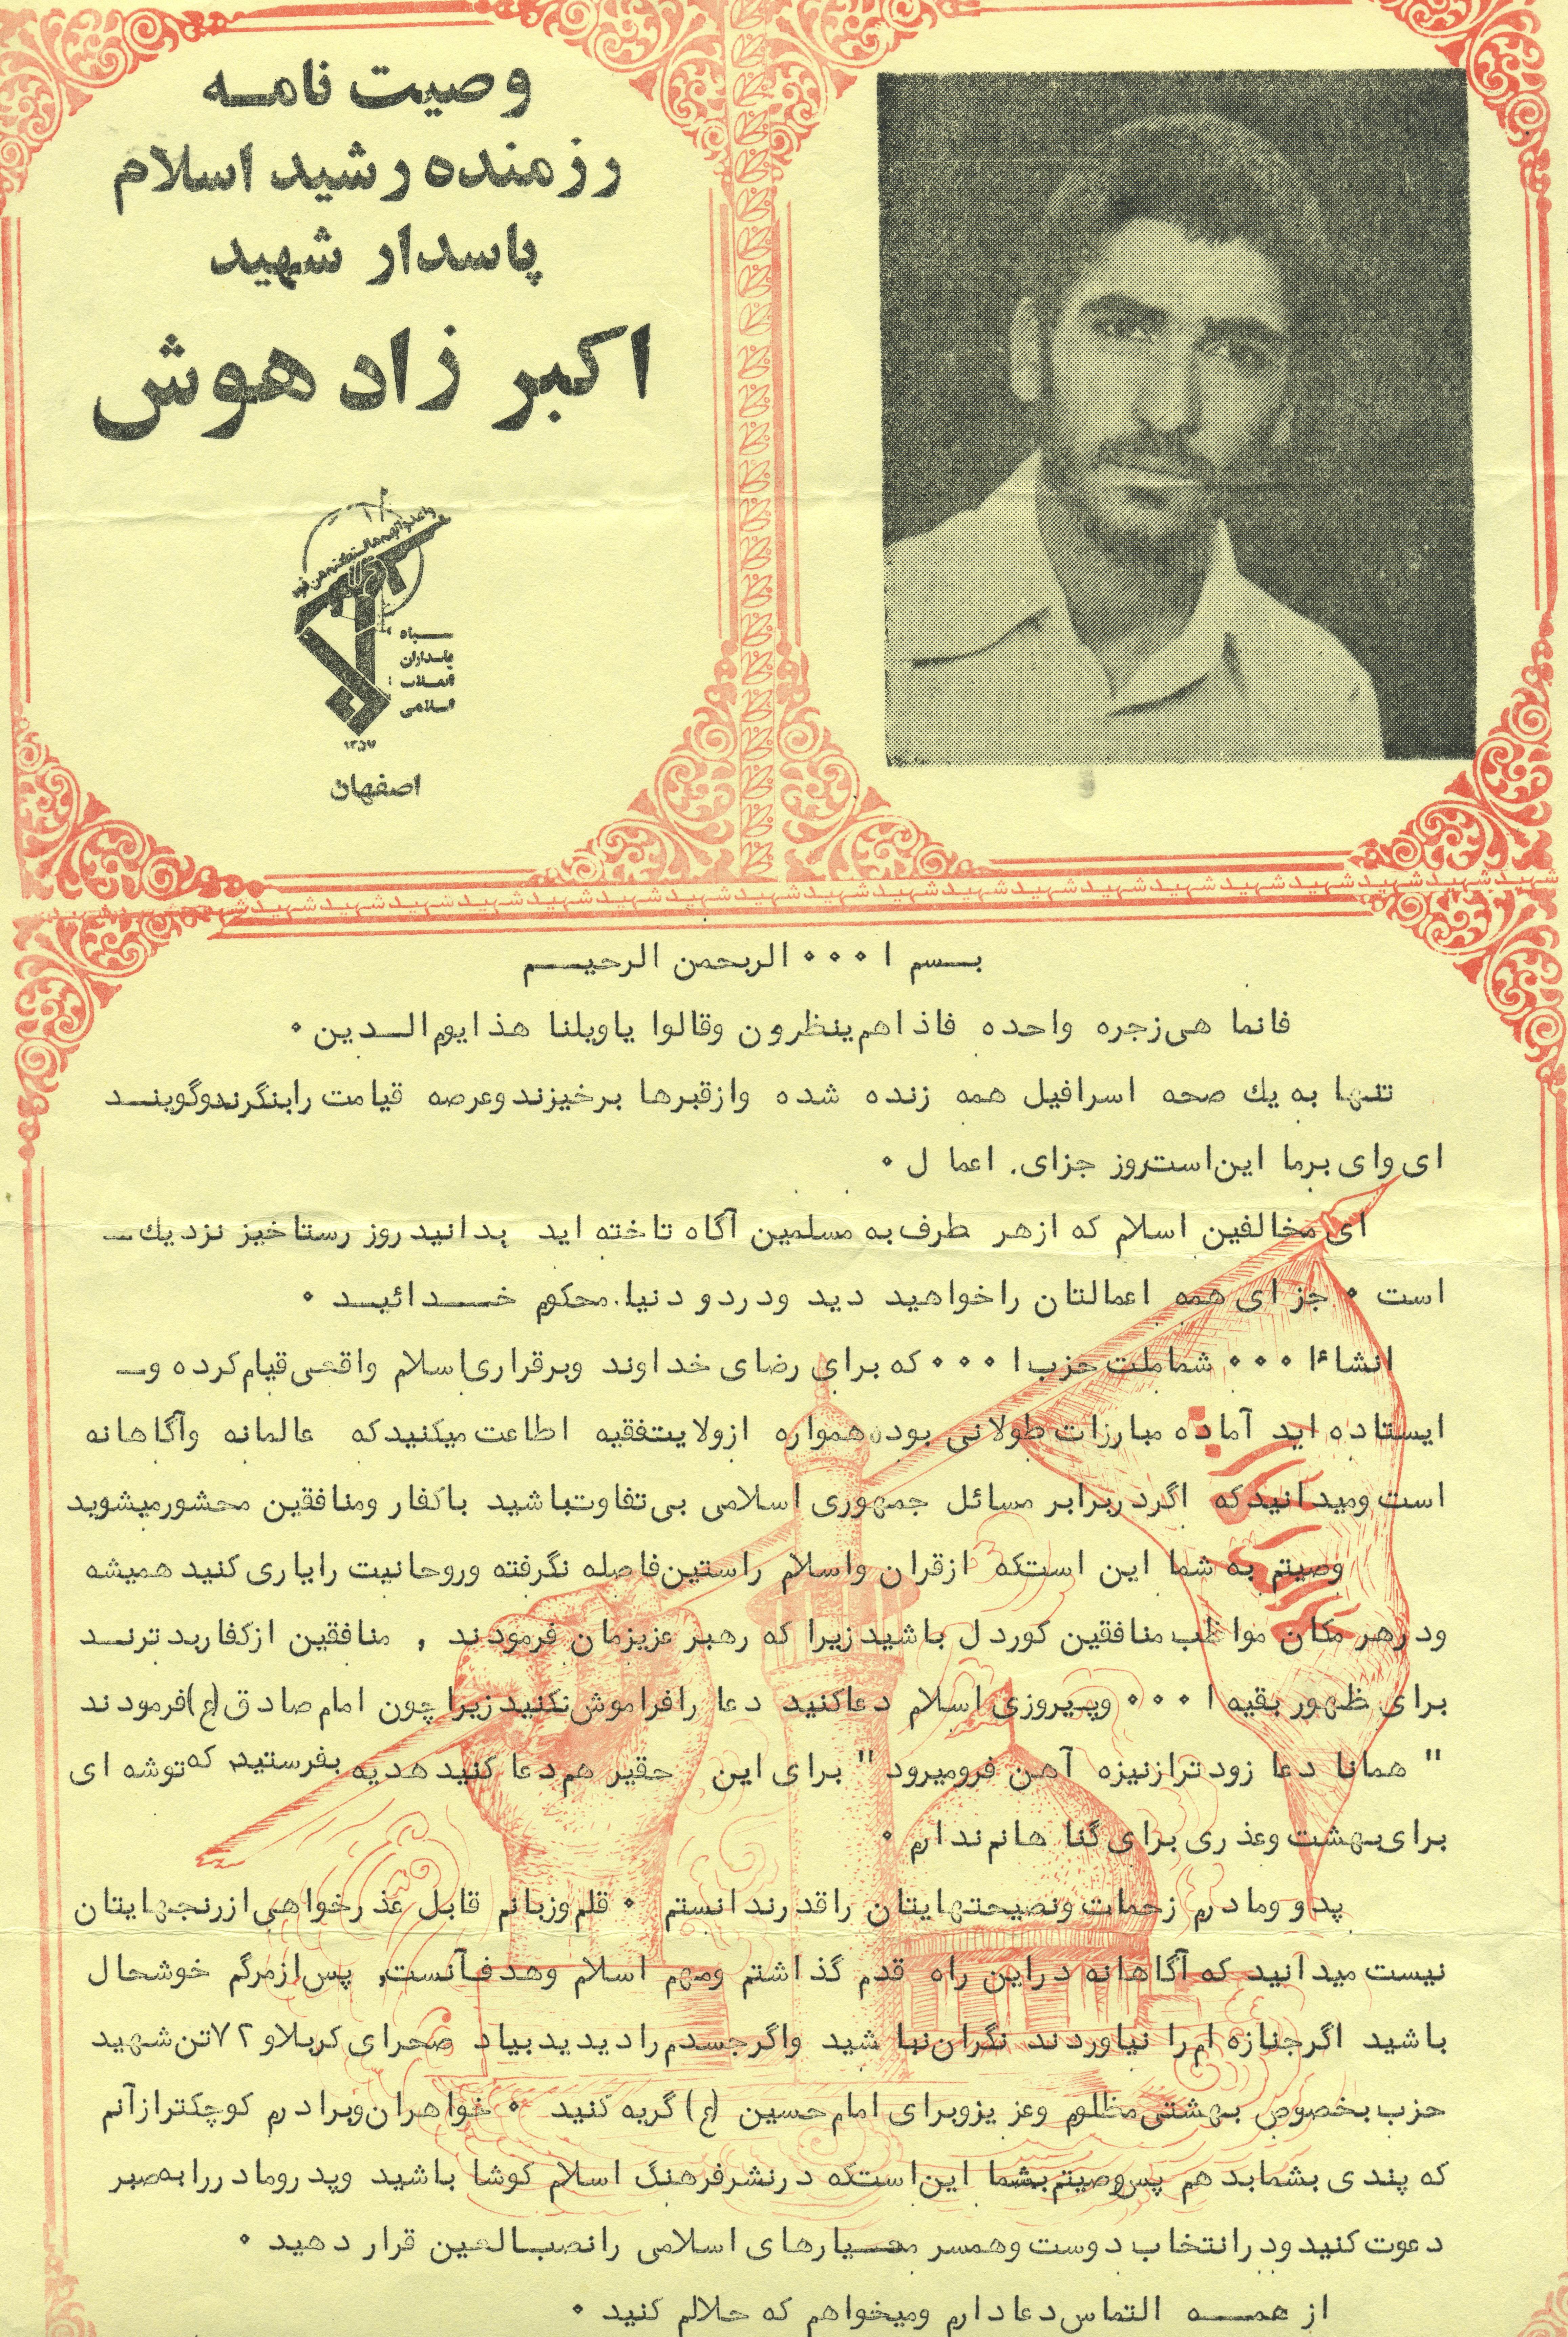 وصیت نامه
رزمنده رشید اسلام
پاسدار شهید
اکبر زاد هوش
سپاه
پاسداران
انقلاب
اسلامی
۱۳۵۷
اصفهان
شهید شهید شهید شهید شهید شهید شهید شهید شهید شهید شهید شهید شهید شهید شهید شهید شهید شهید شهید شهید شهید شهید
بسم ا ۰۰۰ الربحمن الرحیم
فانما هی زجره واحده فاذاهم ینظرون وقالوا یاویلنا هذا یوم الدین ۰
تنها به یك صحه اسرافیل همه زنده شده وازقبرها برخیزند وعرصه قیامت رابنگرندوگویند
ای وای برما این است روز جزای. اعما ل ۰
ای مخالفین اسلام که ازهر طرف به مسلمین آگاه تاخته اید بدانید روز رستاخیز نزدیك
است ۰ جزای همه اعمالتان راخواهید دید ودردو دنیا. محکوم خدائید ۰
انشاءا ۰۰۰ شماملت حزب ا ۰۰۰ که برای رضای خداوند وبرقراری اسلام واقعی قیام کرده و
ایستاده اید آماده مبارزات طولانی بوده همواره ازولایتفقیه اطاعت میکنید که عالمانه وآگاهانه
است ومیدانید که اگردربرابر مسائل جمهوری اسلامی بی تفاوتباشید باکفار ومنافقین محشورمیشوید
وصیتم به شما این استکه ازقران واسلام راستین فاصله نگرفته وروحانیت رایاری کنید همیشه
ودرهر مکان مواظب منافقین کوردل باشید زیرا که رهبر عزیزمان فرمودند , منافقین ازکفاربدترند
برای ظهور بقیه ا ۰۰۰ وپیروزی اسلام دعاکنید دعا رافراموش نکنید زیرا چون امام صادق (ع) فرمودند
" همانا دعا زود ترازنیزه آهن فرومیرود " برای این حقیر هم دعا کنید هدیه بفرستید که توشه ای
برای بهشت وعذری برای گنا هانم ندارم ۰
پدو ومادرم زحمات ونصیحتهایتان راقدرندانستم ۰ قلم وزبانم قابل عذرخواهی ازرنجهایتان
نیست میدانید که آگاهانه دراین راه قدم گذاشتم ومهم اسلام وهدف آنست, پس ازمرگم خوشحال
باشید اگرجنازه ام را نیاوردند نگران نبا شید واگرجسدم رادیدید بیاد صحرای کربلاو ۷۲ تن شهید
حزب بخصوص بهشتی مظلوم وعز یزوبرای امام حسین (ع) گریه کنید ۰ خواهران وبرادرم کوچکترازآنم
که پندی بشمابدهم پس وصیتم بشما این استکه درنشرفرهنگ اسلام کوشا باشید وپدرومادررا به صبر
دعوت کنید ودرانتخاب دوست وهمسر معیارهای اسلامی رانصب العین قرار دهید ۰
از همه التماس دعادارم ومیخواهم که حلالم کنید ۰